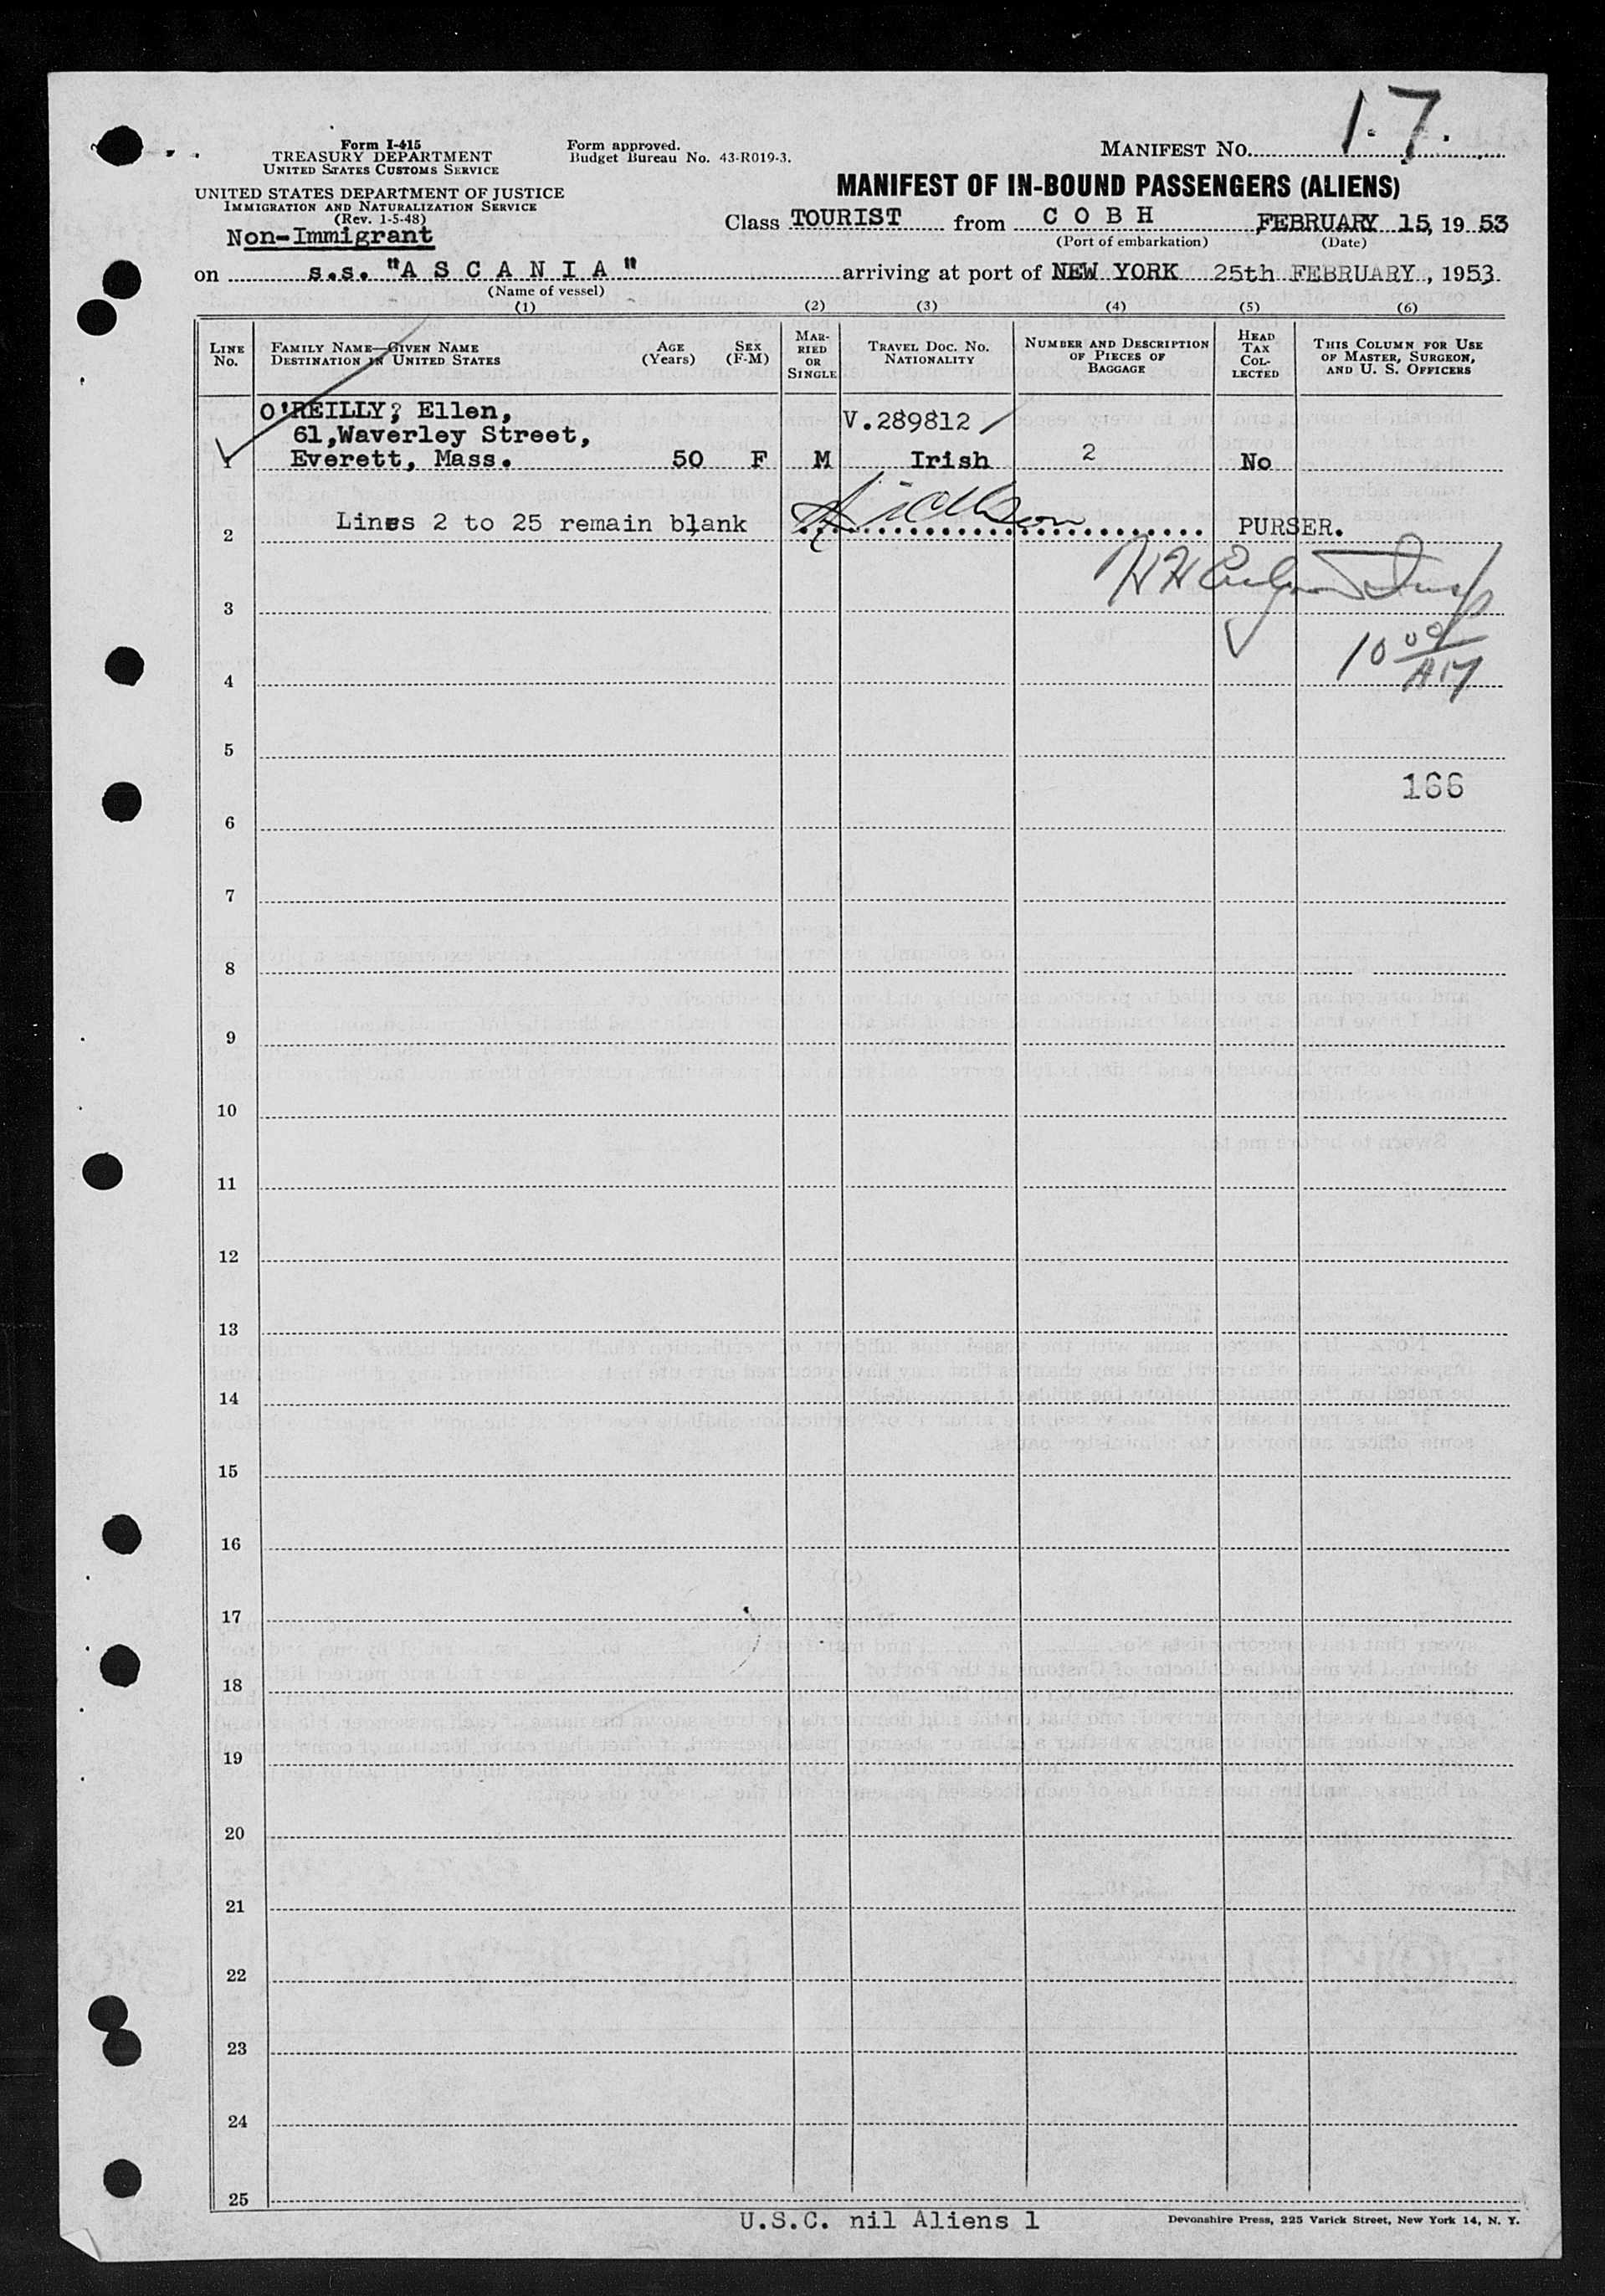 17.
Form I-415
TREASURY DEPARTMENT
UNITED STATES CUSTOMS SERVICE
Form approved.
Budget Bureau No. 43-R019-3.
MANIFEST NO.
UNITED STATES DEPARTMENT OF JUSTICE
IMMIGRATION AND NATURALIZATION SERVICE
(Rev. 1-5-48)
Non-Immigrant
MANIFEST OF IN-BOUND PASSENGERS (ALIENS)
Class TOURIST from C O B H FEBRUARY 15, 19 53
(Port of embarkation) (Date)
on s.s. "A S C A N I A" arriving at port of NEW YORK 25th FEBRUARY, 1953
(Name of vessel)
(1) (2) (3) (4) (5) (6)
LINE NO.
FAMILY NAME—GIVEN NAME
DESTINATION IN UNITED STATES
AGE (Years)
SEX (F-M)
MARRIED OR SINGLE
TRAVEL DOC. NO.
NATIONALITY
NUMBER AND DESCRIPTION OF PIECES OF BAGGAGE
HEAD TAX COLLECTED
THIS COLUMN FOR USE OF MASTER, SURGEON, AND U. S. OFFICERS
O'REILLY, Ellen,
61,Waverley Street, V.289812
1 Everett, Mass. 50 F M Irish 2 No
2 Lines 2 to 25 remain blank PURSER.
3
10 00 AM
4
5
166
6
7
8
9
10
11
12
13
14
15
16
17
18
19
20
21
22
23
24
25
U.S.C. nil Aliens 1
Devonshire Press, 225 Varick Street, New York 14, N. Y.